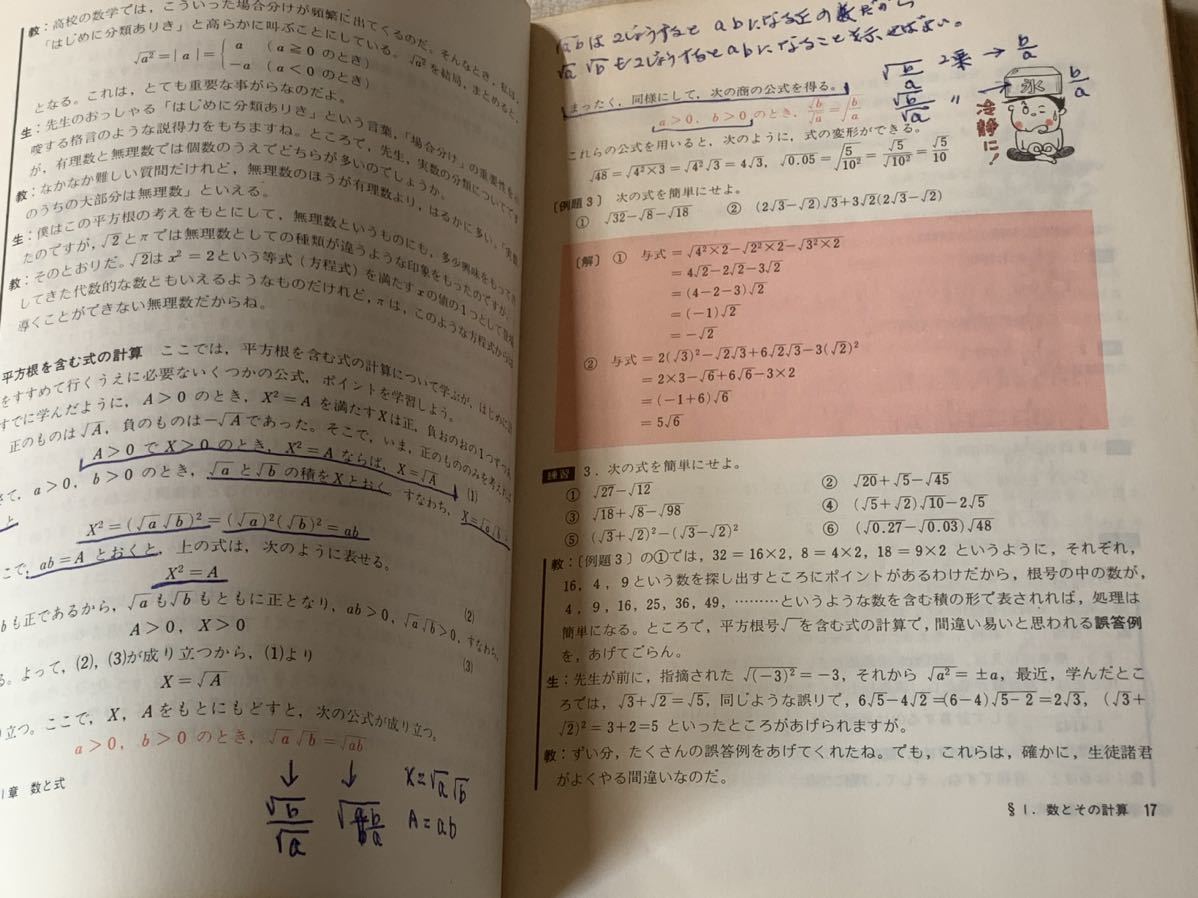 教：高校の数学では，こういった場合分けが頻繁に出てくるのだ。そんなとき，私は，
「はじめに分類ありき」と高らかに叫ぶことにしている。√a²を結局，まとめると，
√a² = |a| = { a （a ≧ 0 のとき）
−a （a < 0 のとき）
となる。これは，とても重要な事がらなのだよ。
生：先生のおっしゃる「はじめに分類ありき」という言葉，「場合分け」の重要性を
唆する格言のような説得力をもちますね。ところで，先生，実数の分類についてです
が，有理数と無理数では個数のうえでどちらが多いのでしょうか。
教：なかなか難しい質問だけれど，無理数のほうが有理数より，はるかに多い。「実数
のうちの大部分は無理数」といえる。
生：僕はこの平方根の考えをもとにして，無理数というものにも，多少興味をもって
たのですが，√2とπでは無理数としての種類が違うような印象をもったのですが。
教：そのとおりだ。√2は x² = 2 という等式（方程式）を満たす x の値の1つとして
してきた代数的な数ともいえるようなものだけれど，πは，このような方程式からは
導くことができない無理数だからね。
平方根を含む式の計算 ここでは，平方根を含む式の計算について学ぶが，はじめに
をすすめて行くうえに必要ないくつかの公式，ポイントを学習しよう。
すでに学んだように，A>0 のとき，X²=A を満たすXは正，負おのおの1つずつ
正のものは√A，負のものは−√Aであった。そこで，いま，正のもののみを考えれば
A>0 で X>0 のとき，X²=A ならば，X=√A (1)
さて，a>0，b>0 のとき，√a と√b の積をXとおく。すなわち，X=√a√b
と
X²=(√a√b)²=(√a)²(√b)²=ab
こで，ab=A とおくと，上の式は，次のように表せる。
X²=A (2)
bも正であるから，√aも√bもともに正となり，ab>0，√a√b>0，すなわち，
A>0，X>0 (3)
る。よって，(2)，(3)が成り立つから，(1)より
X=√A
り立つ。ここで，X，Aをもとにもどすと，次の公式が成り立つ。
a>0，b>0 のとき，√a√b=√ab
↓ ↓
√b/√a
X=√a√b
A=ab
1章 数と式
√abは2じょうするとabになる正の数だから
√a√bも2じょうするとabになること を示せばよい。
√(b/a) 2乗 → b/a
√b/√a 〃 → b/a
氷
冷静に！
まったく，同様にして，次の商の公式を得る。
a>0，b>0 のとき，√b/√a=√(b/a)
これらの公式を用いると，次のように，式の変形ができる。
√48=√(4²×3)=√4²√3=4√3，√0.05=√(5/10²)=√5/√10²=√5/10
〔例題3〕 次の式を簡単にせよ。
① √32−√8−√18 ② (2√3−√2)√3+3√2(2√3−√2)
〔解〕 ① 与式=√(4²×2)−√(2²×2)−√(3²×2)
=4√2−2√2−3√2
=(4−2−3)√2
=(−1)√2
=−√2
② 与式=2(√3)²−√2√3+6√2√3−3(√2)²
=2×3−√6+6√6−3×2
=(−1+6)√6
=5√6
練習 3．次の式を簡単にせよ。
① √27−√12 ② √20+√5−√45
③ √18+√8−√98 ④ (√5+√2)√10−2√5
⑤ (√3+√2)²−(√3−√2)² ⑥ (√0.27−√0.03)√48
教：〔例題3〕の①では，32=16×2，8=4×2，18=9×2 というように，それぞれ，
16，4，9という数を探し出すところにポイントがあるわけだから，根号の中の数が，
4，9，16，25，36，49，………というような数を含む積の形で表されれば，処理は
簡単になる。ところで，平方根号√ を含む式の計算で，間違い易いと思われる誤答例
を，あげてごらん。
生：先生が前に，指摘された √(−3)²=−3，それから √a²=±a，最近，学んだとこ
ろでは，√3+√2=√5，同じような誤りで，6√5−4√2=(6−4)√5−2=2√3，(√3+
√2)²=3+2=5 といったところがあげられますが。
教：ずい分，たくさんの誤答例をあげてくれたね。でも，これらは，確かに，生徒諸君
がよくやる間違いなのだ。
§1．数とその計算 17